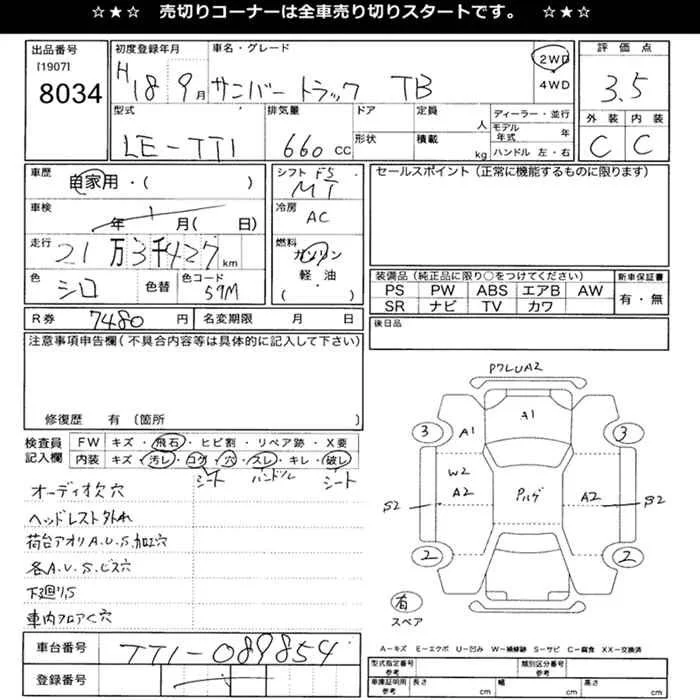 ☆★☆ 売切りコーナーは全車売り切りスタートです。 ☆★☆
出品番号 [1907] 8034
初度登録年月 H18 9月
車名・グレード サンバートラック TB
2WD 4WD
評価点 3.5
外装 C 内装 C
型式 LE-TT1
排気量 660 cc
ドア 形状
定員 人 積載 kg
ディーラー・並行
モデル年式 年
ハンドル 左・右
車歴 自家用・( )
車検 年 月( 日)
走行 21万3千427 km
色 シロ 色替 色コード 59M
シフト F5 MT
冷房 AC
燃料 ガソリン 軽・油 ( )
セールスポイント(正常に機能するものに限ります)
装備品(純正品に限り○をつけてください) 新車保証書
PS PW ABS エアB AW 有・無
SR ナビ TV カワ
R券 7480円 名変期限 月 日
後日品
注意事項申告欄(不具合内容等は具体的に記入して下さい)
修復歴 有(箇所
検査員記入欄
FW キズ・飛石・ヒビ割・リペア跡・X要
内装 キズ・汚レ・コゲ・穴・スレ・キレ・破レ
シート ハンドル シート
オーディオ欠 穴
ヘッドレスト外れ
荷台アオリA.U.S.加工穴
各A.U.S.ビス穴
下廻りS
車内フロアC穴
車台番号 TT1-089854
登録番号
A1
3 A1 3
W2
S2 A2 A2 S2
2 2
有
スペア
A-キズ E-エクボ U-凹み W-補修跡 S-サビ C-腐食 XX-交換済
型式指定番号 参考 類別区分番号 参考
車庫証明用 参考 長さ cm 幅 cm 高さ cm